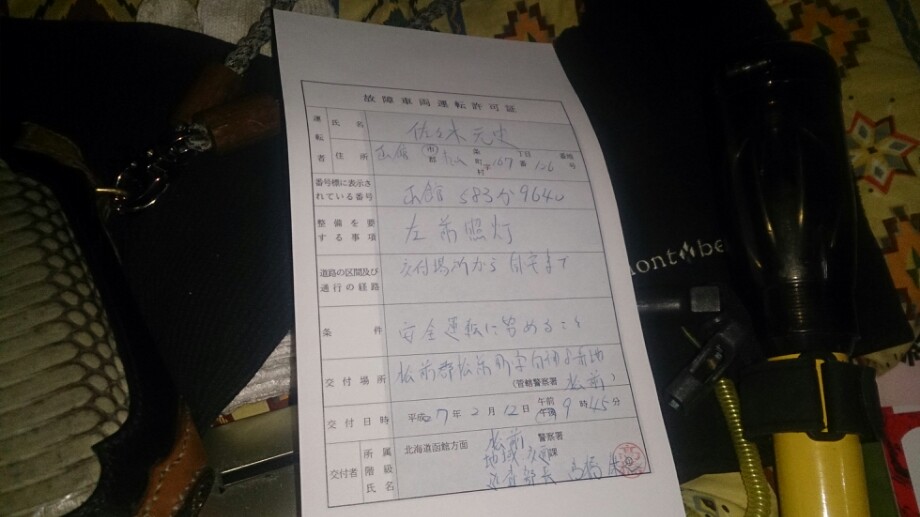 故障車両運転許可証
運転者 氏名 佐々木元史
住所 函館 市 町 167 丁目 番 126 番地 号
番号標に表示されている番号 函館 583 か 9640
整備を要する事項 左前照灯
道路の区間及び通行の経路 交付場所から自宅まで
条件 安全運転に努めること
交付場所 松前郡松前町字 番地
(管轄警察署 松前)
交付日時 平成27年2月12日 午前 午後 9時45分
交付者 所属 階級 氏名 北海道函館方面 松前 警察署
地域 課
巡査部長 高橋
mont-be